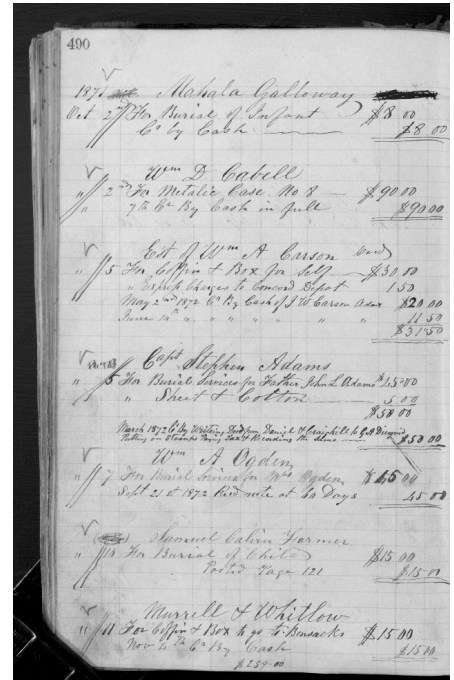 490
1871 Mahala Galloway
Oct 2nd For Burial of Infant $8 00
Cr by Cash $8 00
Wm D Cabell
" 2nd For Metalic Case No 8 $90 00
" 7th Cr By Cash in full $90 00
Est of Wm A Carson
" 5 For Coffin & Box for Self $30.00
" Express Charges to Concord Depot 1 50
May 2nd 1872 Cr By Cash of J W Carson Admr $20 00
June 14th " " " " " " 11 50
$31.50
Capt Stephen Adams
" 5 For Burial Services for Father John L Adams $45.00
" Sheet & Cotton 5.00
$50 00
March 1872 Cr By Writing Deed from Daniel & Craighill to
Putting on Stamps Paying Tax & Recording the Same $50 00
Wm A Ogden
" 7 For Burial Services for Mrs Ogden $45 00
Sept 21st 1872 Recd note at 60 Days 45 00
Samuel Calvin Farmer
" 10 For Burial of Child $15 00
Posted Page 121 $15 00
Murrell & Whitlow
" 11 For Coffin & Box to go to Bonsacks $15 00
Nov 4th Cr By Cash $15 00
$259.00